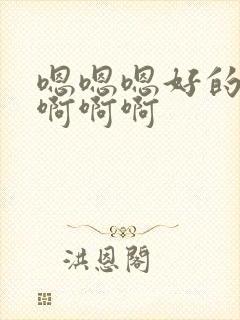 嗯嗯嗯好的
啊啊啊
洪恩阁